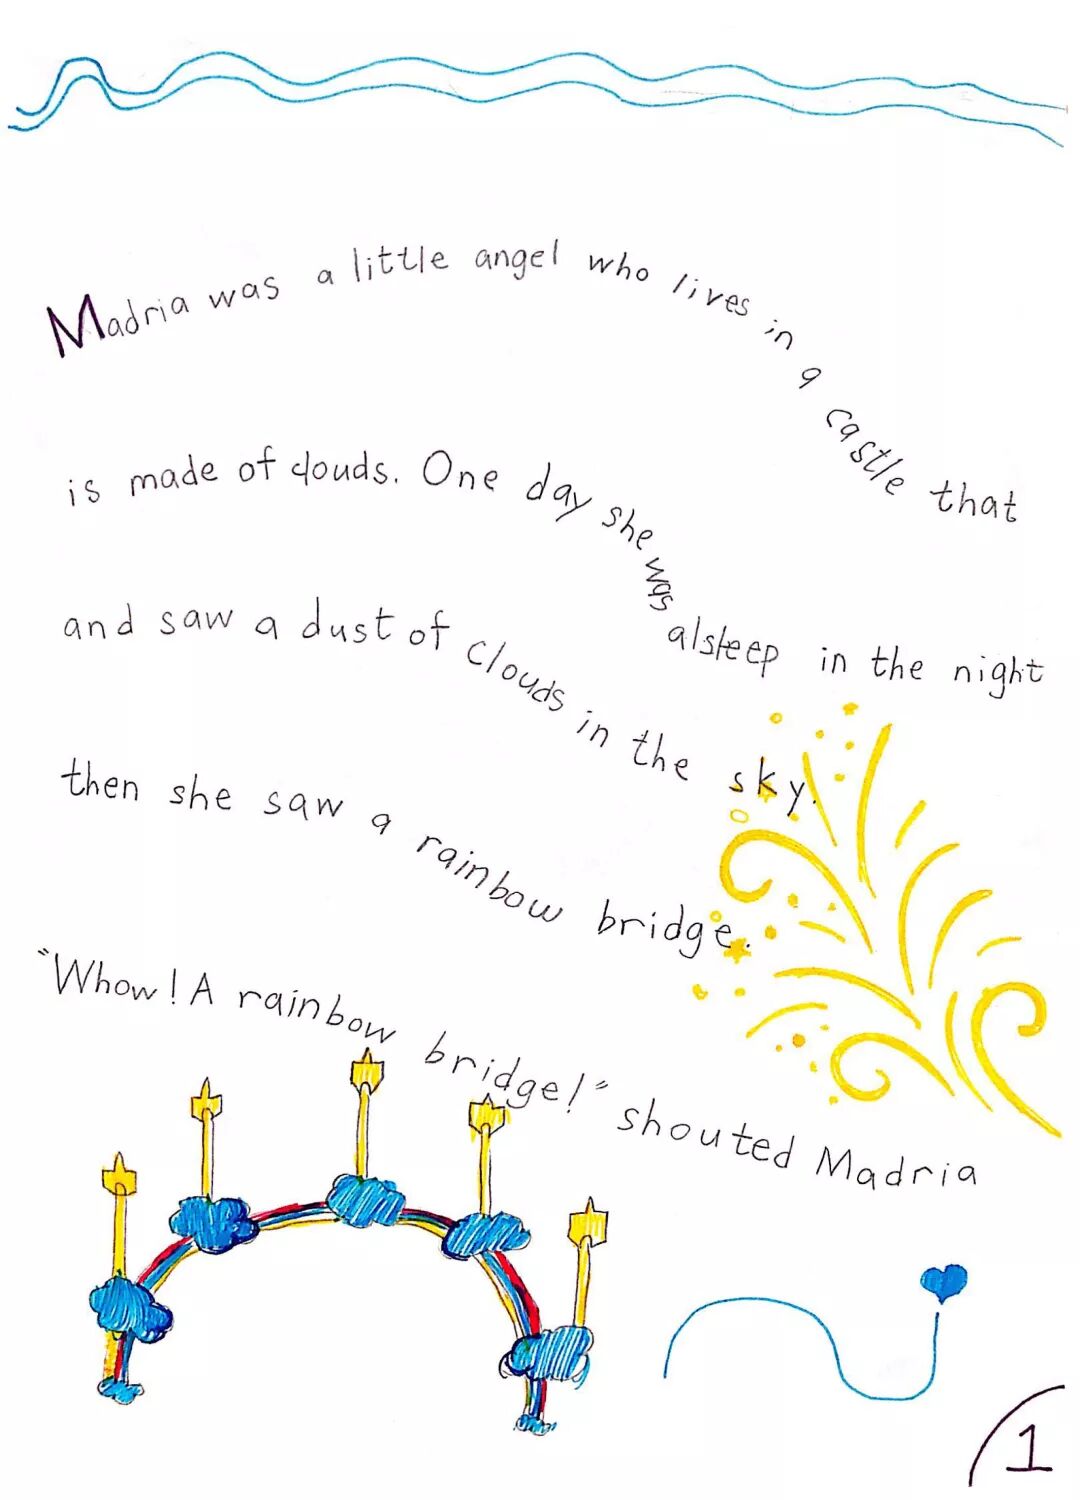 Madria was a little angel who lives in a castle that
is made of clouds. One day she was alsleep in the night
and saw a dust of clouds in the sky.
then she saw a rainbow bridge.
"Whow! A rainbow bridge!" shouted Madria
1